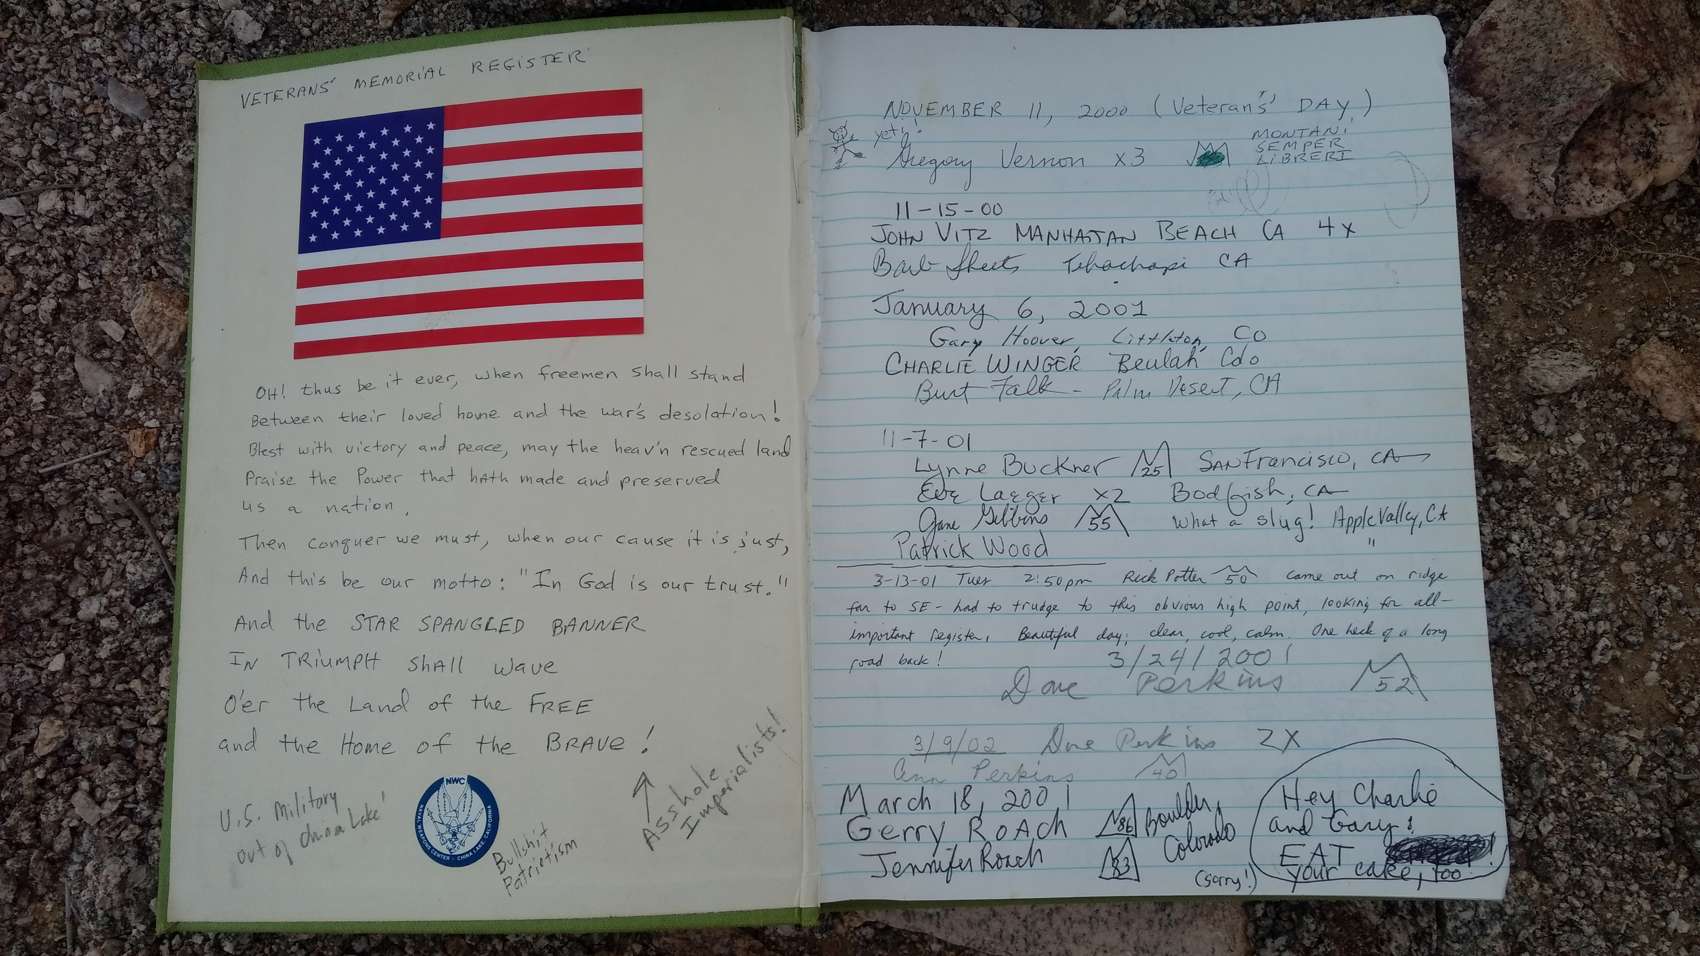 VETERANS' MEMORIAL REGISTER
OH! thus be it ever, when freemen shall stand
Between their loved home and the war's desolation!
Blest with victory and peace, may the heav'n rescued land
Praise the Power that hath made and preserved
us a nation.
Then conquer we must, when our cause it is just,
And this be our motto: "In God is our trust."
And the STAR SPANGLED BANNER
IN TRIUMPH SHALL WAVE
O'er the Land of the FREE
and the Home of the BRAVE!
U.S. Military
out of China Lake!
NWC
NAVAL WEAPONS CENTER - CHINA LAKE, CALIFORNIA
Bullshit
Patriotism
Asshole
Imperialists!
NOVEMBER 11, 2000 (Veteran's' DAY)
yeti!
Gregory Vernon x3
MONTANI
SEMPER
LIBRERI
11-15-00
JOHN VITZ MANHATTAN BEACH CA 4x
Barb Sheets Tehachapi CA
January 6, 2001
Gary Hoover, Littleton, CO
CHARLIE WINGER Beulah Colo
Burt Falk - Palm Desert, CA
11-7-01
Lynne Buckner 25 San Francisco, CA
Eve Laeger x2 Bodfish, CA
Jane Gibbins 55 What a slug! Apple Valley, CA
Patrick Wood "
3-13-01 Tues 2:50pm Rick Potter 50 came out on ridge
far to SE - had to trudge to this obvious high point, looking for all-
important register. Beautiful day; clear, cool, calm. One heck of a long
road back!
3/24/2001
Dave Perkins 52
3/9/02 Dave Perkins 2X
Ann Perkins 40
March 18, 2001
Gerry Roach 86 Boulder,
Jennifer Roach 83 Colorado
(sorry!)
Hey Charlie
and Gary!
EAT
your cake, too!